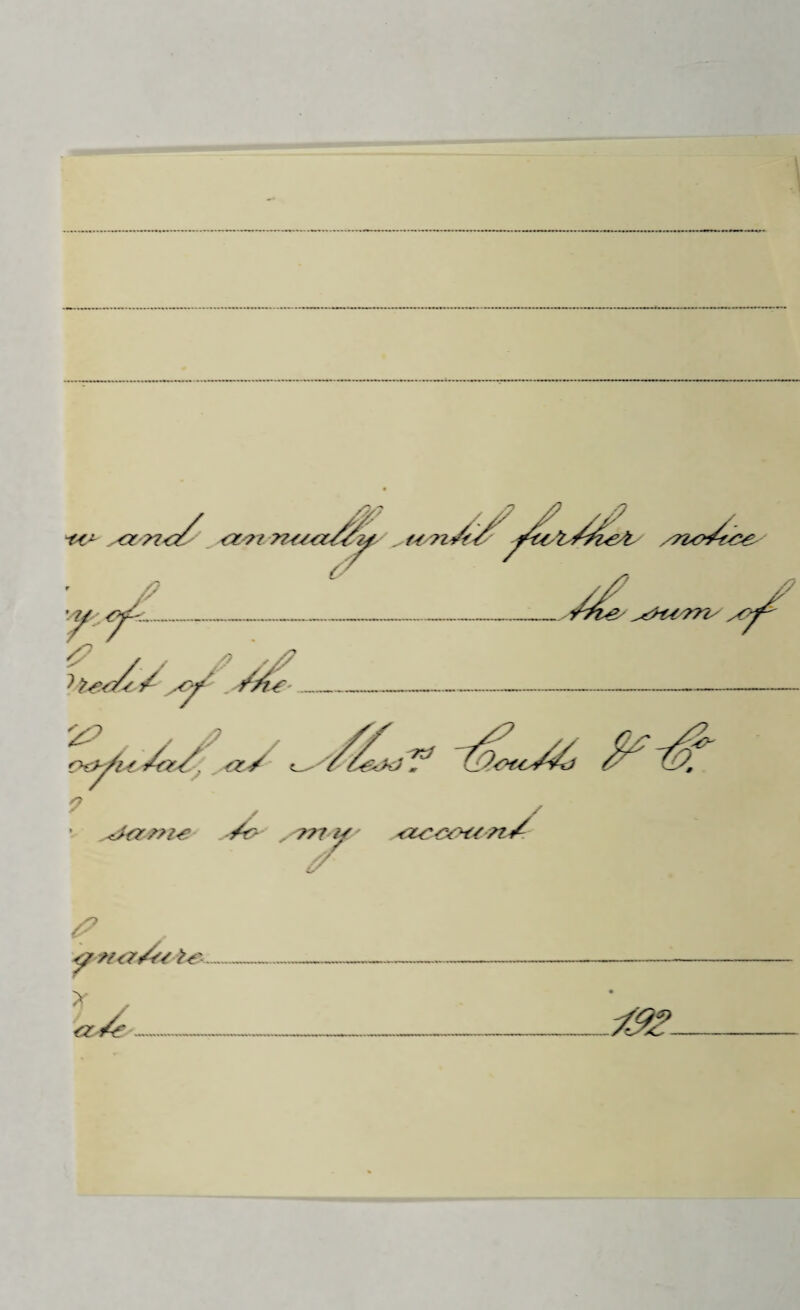 and annually until further notice
of the sum of
of the
at Messrs Coutts & Co.
same to my account
192